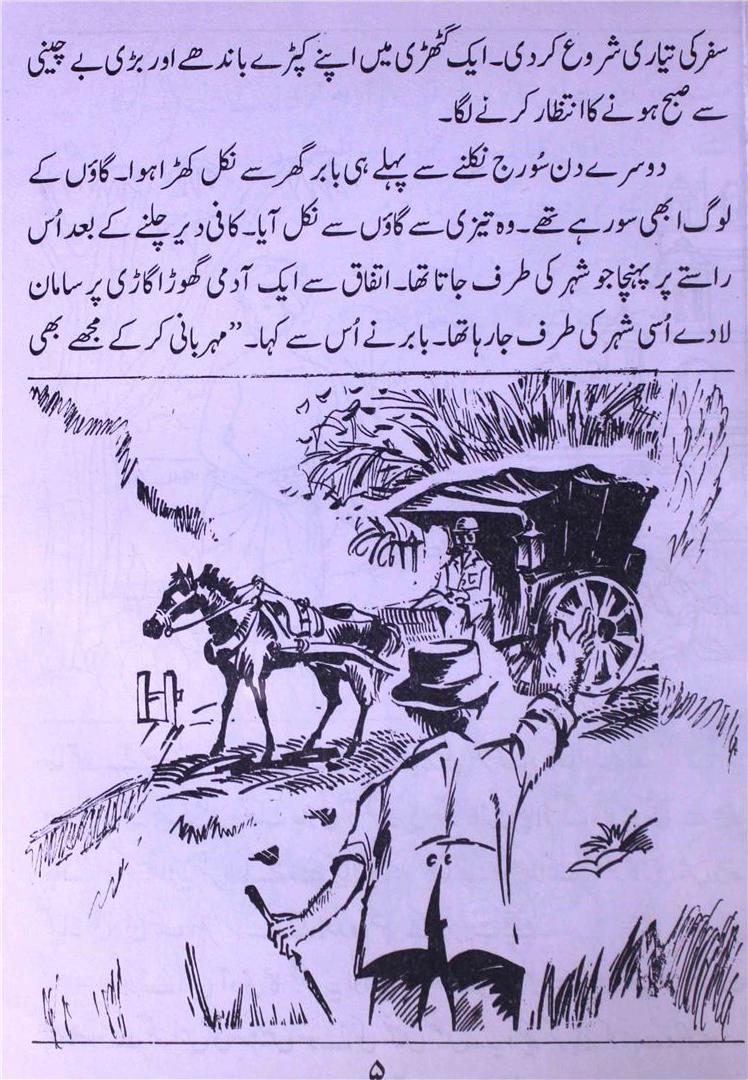 سفر کی تیاری شروع کر دی۔ ایک گٹھڑی میں اپنے کپڑے باندھے اور بڑی بے چینی
سے صبح ہونے کا انتظار کرنے لگا۔
دوسرے دن سُورج نکلنے سے پہلے ہی بابر گھر سے نکل کھڑا ہوا۔ گاؤں کے
لوگ ابھی سو رہے تھے۔ وہ تیزی سے گاؤں سے نکل آیا۔ کافی دیر چلنے کے بعد اُس
راستے پر پہنچا جو شہر کی طرف جاتا تھا۔ اتفاق سے ایک آدمی گھوڑا گاڑی پر سامان
لادے اُسی شہر کی طرف جا رہا تھا۔ بابر نے اُس سے کہا۔ ”مہربانی کر کے مجھے بھی
۵